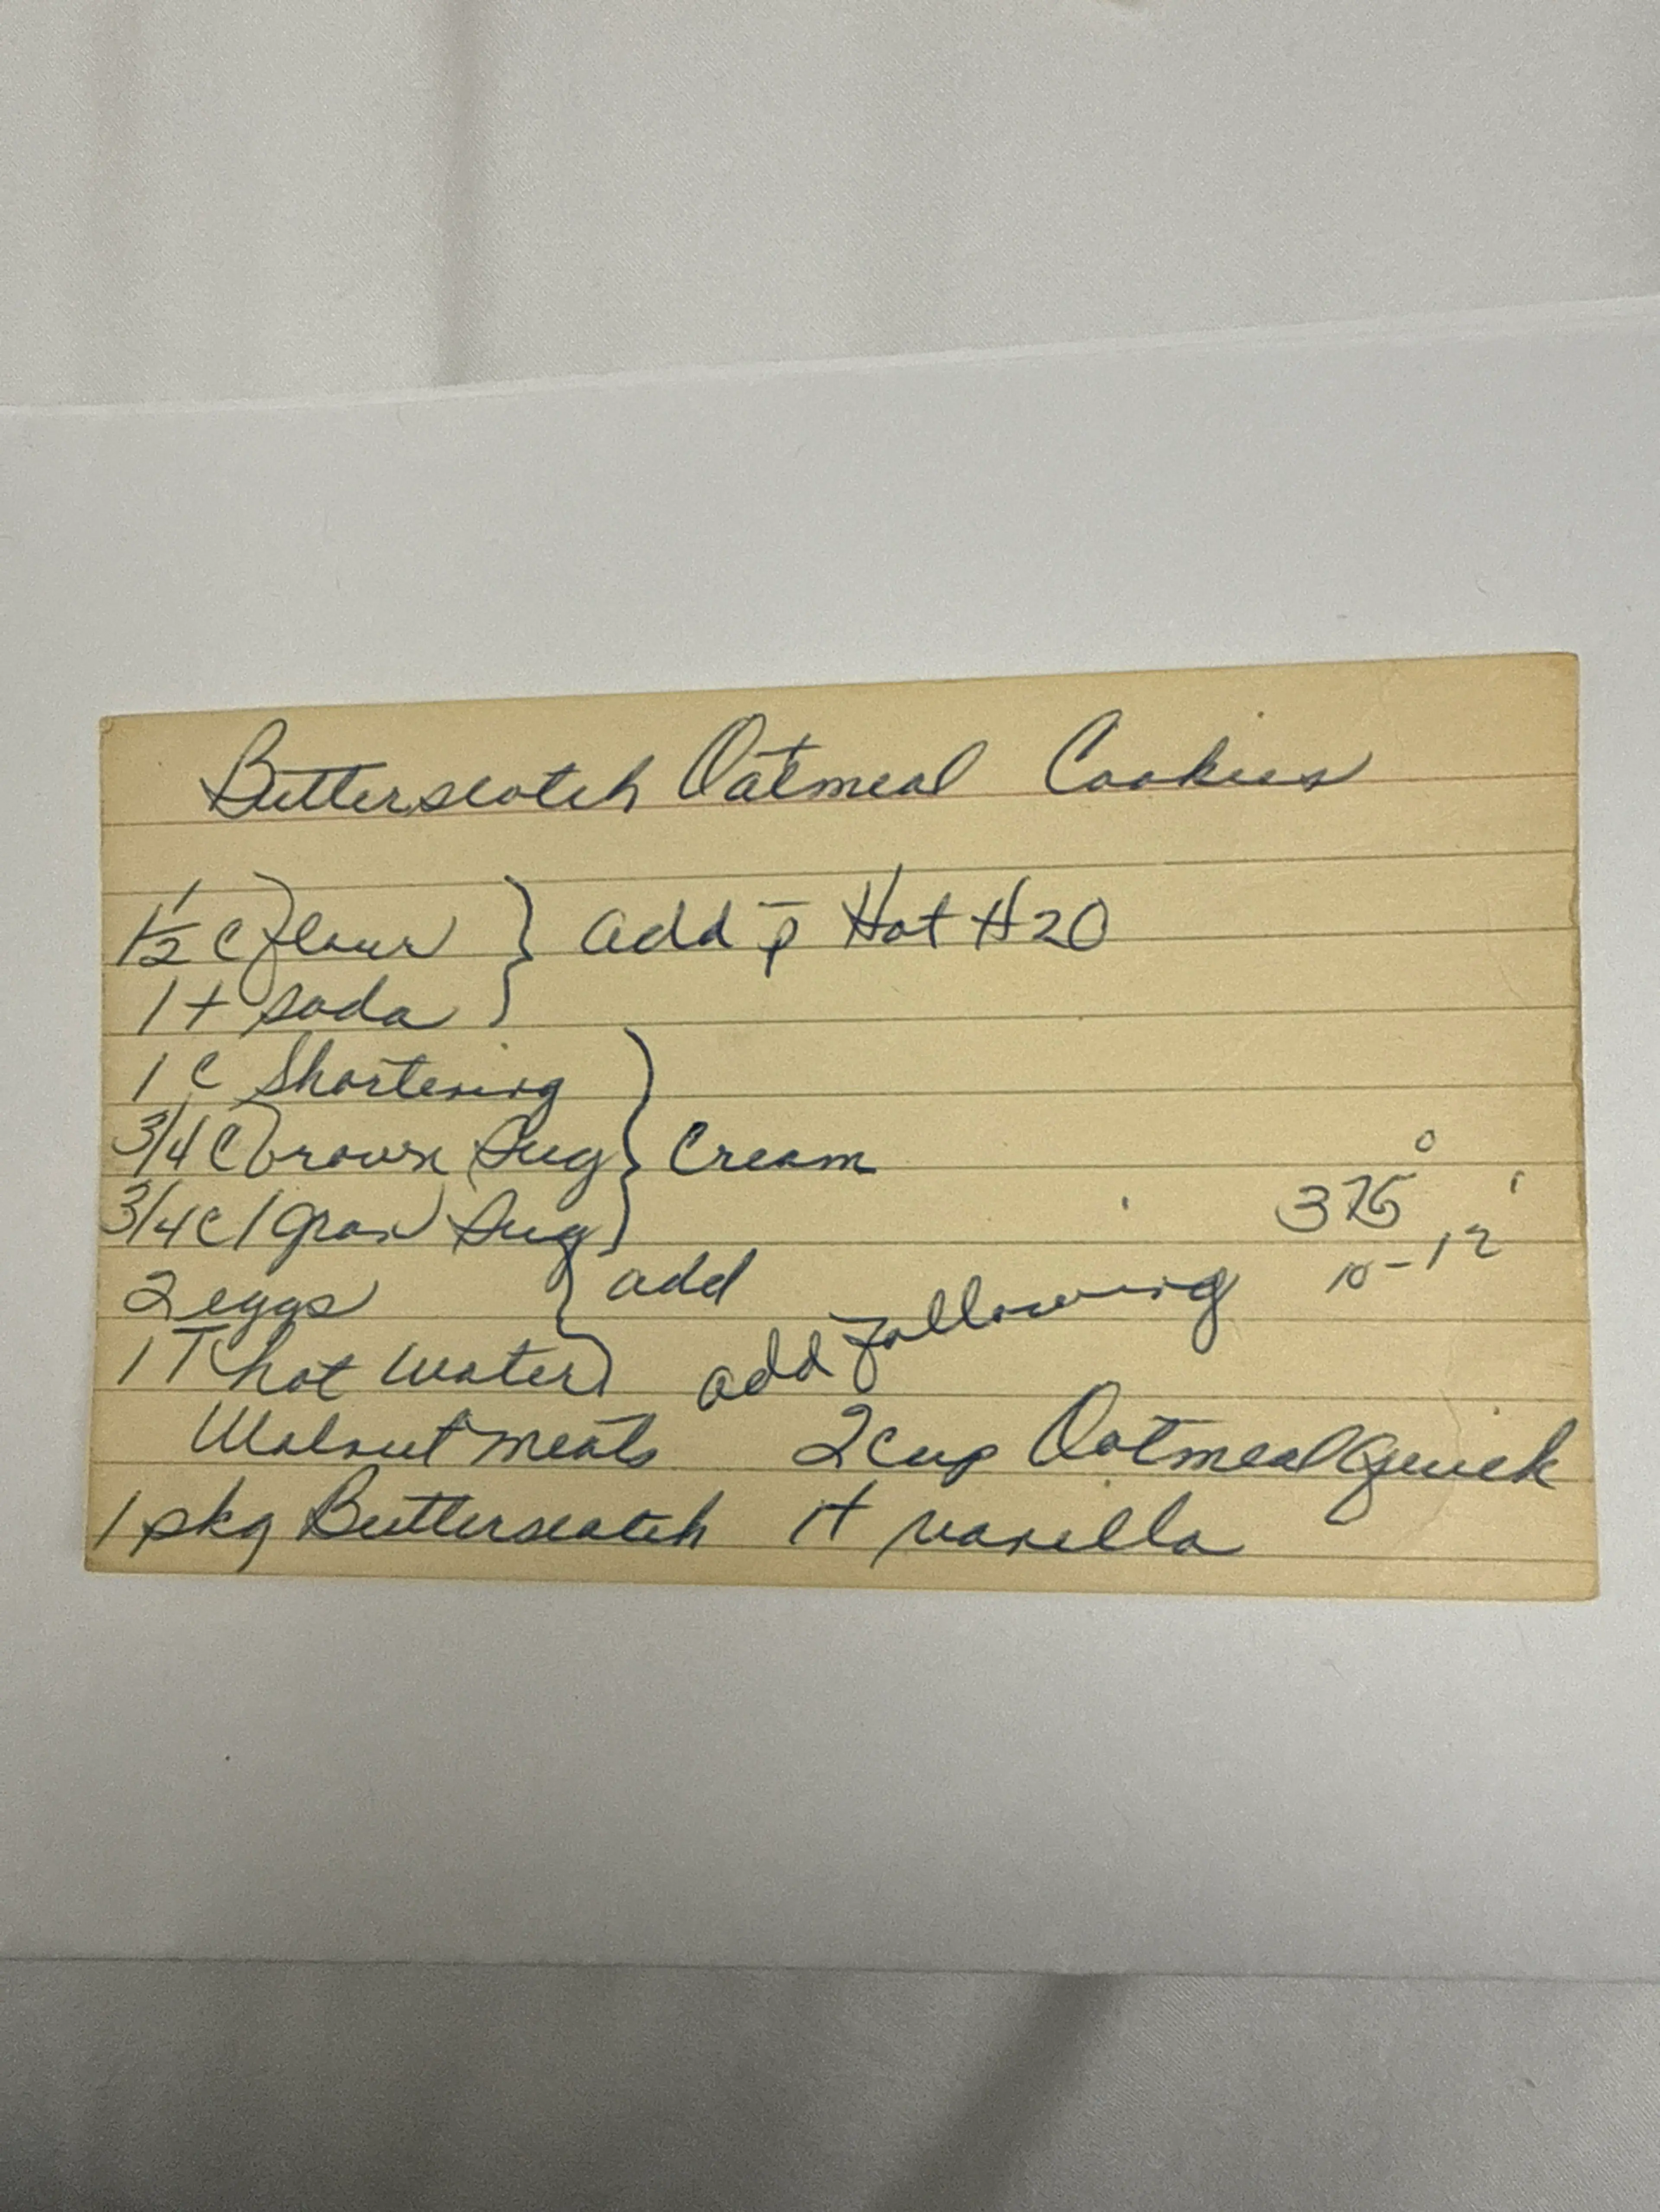 Butterscotch Oatmeal Cookies
1 1/2 c flour } add p̄ Hot H2O
1 t soda
1 c Shortening
3/4 c brown Sug } Cream
3/4 c gran Sug
375°
10-12'
2 eggs } add
1 T hot water
add following
Walnut meats 2 cup Oatmeal Quick
1 pkg Butterscotch 1 t vanilla